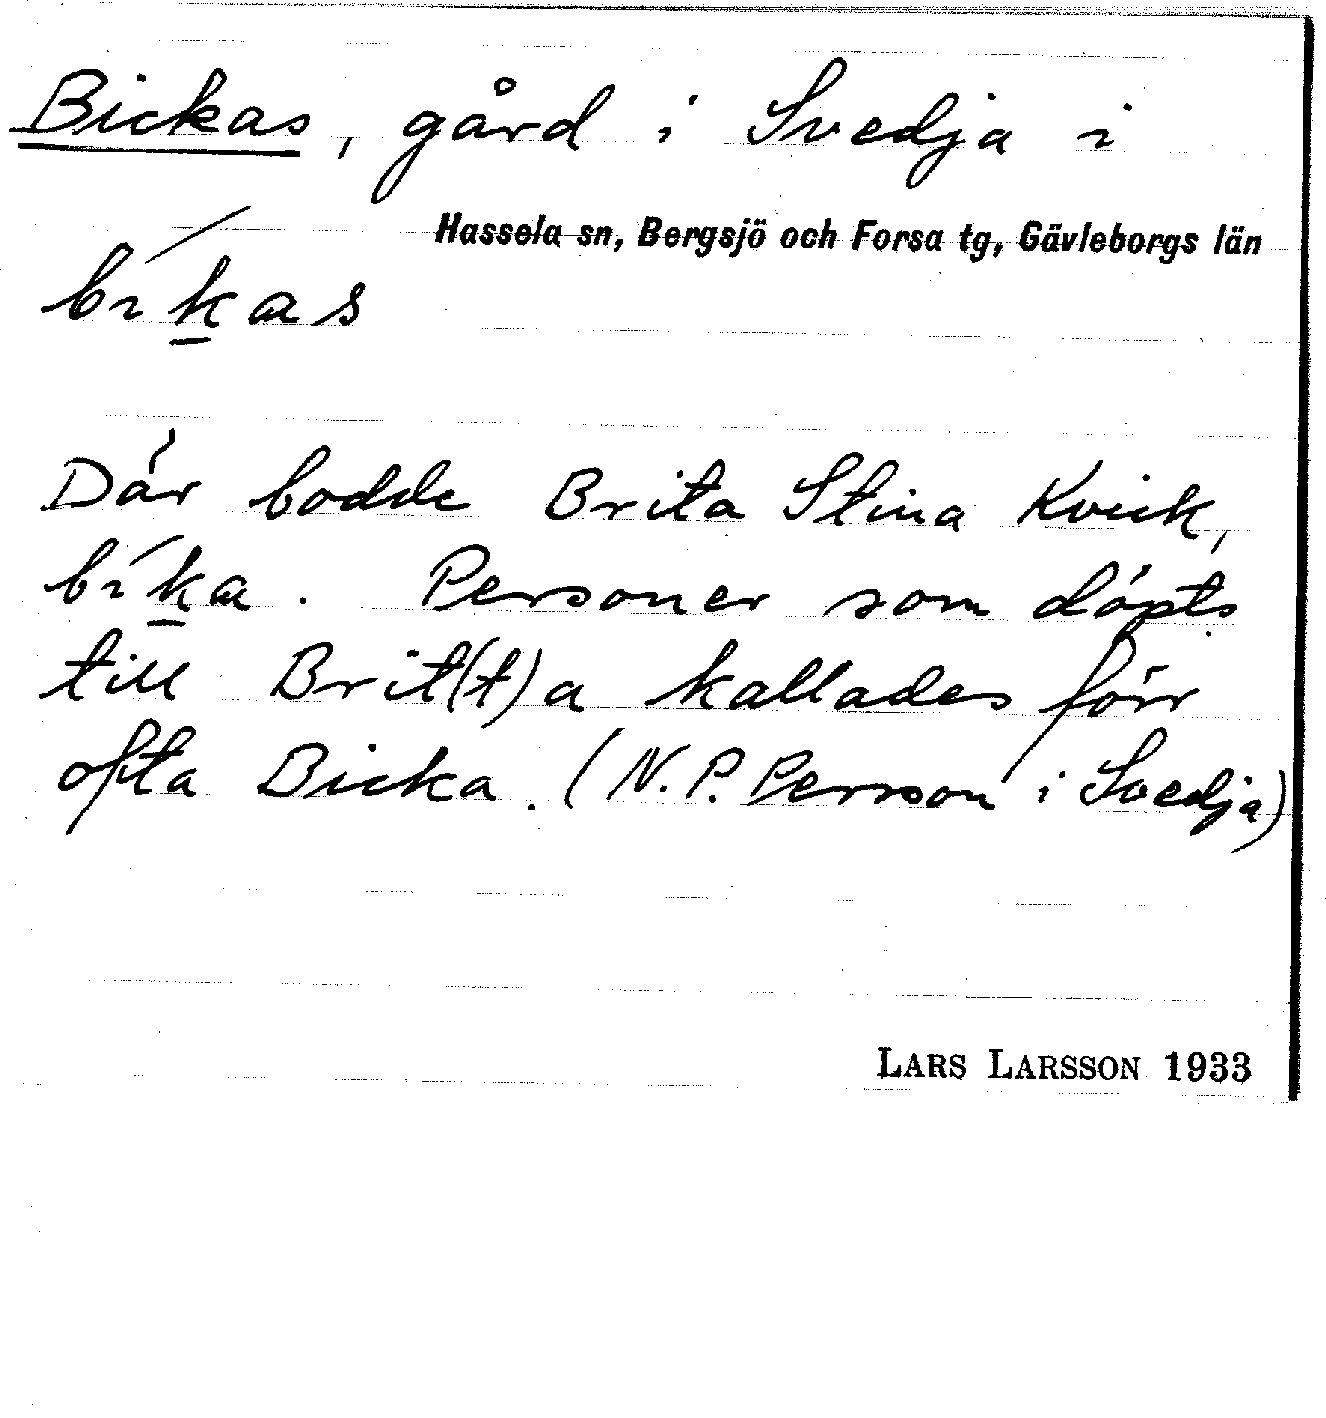 Bickas, gård i Svedja i
Hassela sn, Bergsjö och Forsa tg, Gävleborgs län
bíḵas
Där bodde Brita Stina Kvick,
bíḵa. Personer som döpts
till Brit(t)a kallades förr
ofta Bicka. (N.P. Persson i Svedja)
LARS LARSSON 1933